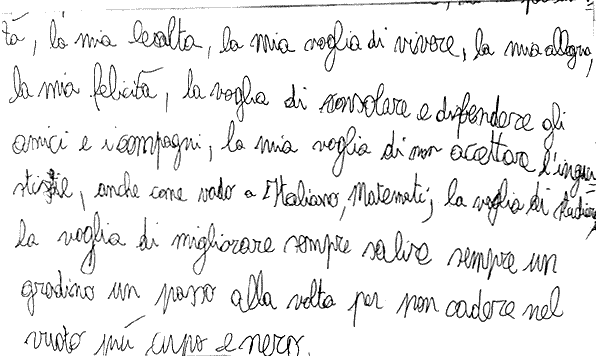 tà, la mia lealtà, la mia voglia di vivere, la mia allegria,
la mia felicità, la voglia di consolare e difendere gli
amici e i compagni, la mia voglia di non accettare l'ingiu-
stizie, anche come vado a Italiano, Matemati; la voglia di studiare
la voglia di migliorare sempre salire sempre un
gradino un passo alla volta per non cadere nel
vuoto più cupo e nero.